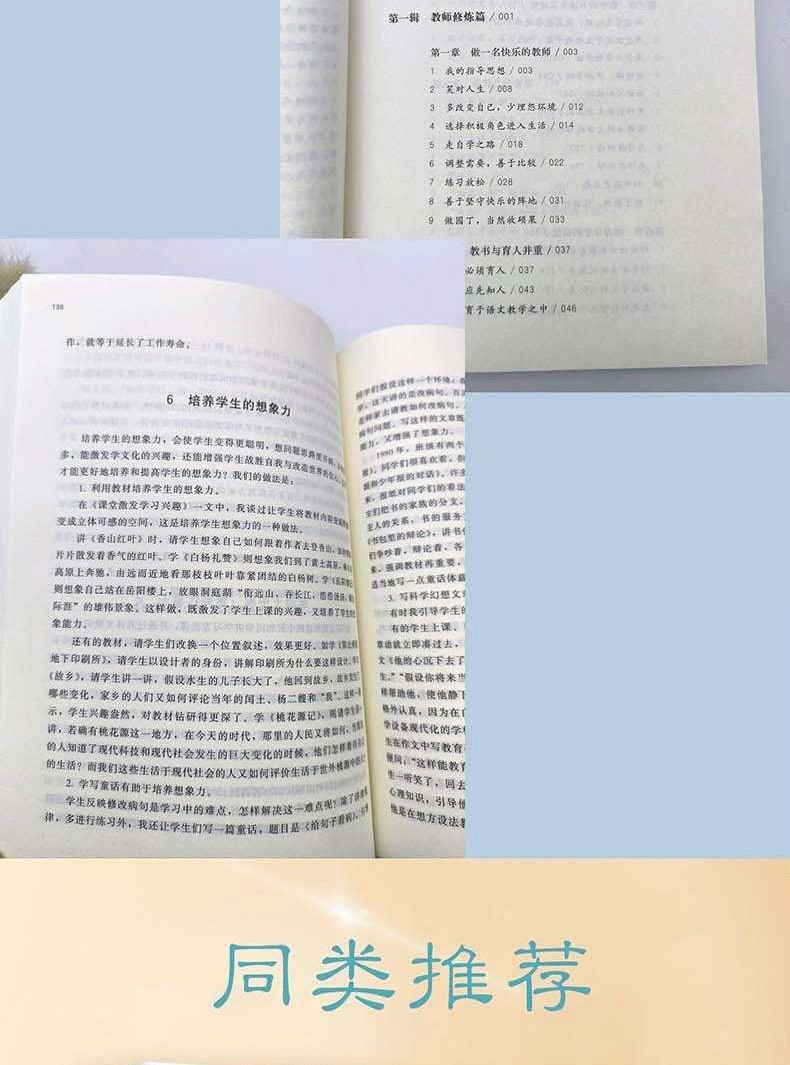 第一辑 教师修炼篇 / 001
第一章 做一名快乐的教师 / 003
1 我的指导思想 / 003
2 笑对人生 / 008
3 多改变自己，少埋怨环境 / 012
4 选择积极角色进入生活 / 014
5 走自学之路 / 018
6 调整需要，善于比较 / 022
7 练习放松 / 028
8 善于坚守快乐的阵地 / 031
9 做园丁，当然收硕果 / 033
教书与育人并重 / 037
必须育人 / 037
应先知人 / 043
育于语文教学之中 / 046
136
作，就等于延长了工作寿命。
6 培养学生的想象力
培养学生的想象力，会使学生变得更聪明，想问题思路更开阔，
多，能激发学文化的兴趣，还能增强学生战胜自我与改造世界的信心，
才能更好地培养和提高学生的想象力？我们的做法是：
1. 利用教材培养学生的想象力。
在《课堂激发学习兴趣》一文中，我谈过让学生将教材内容变成
变成立体可感的空间，这是培养学生想象力的一种做法。
讲《香山红叶》时，请学生想象自己如何跟着作者去登香山，
片片散发着香气的红叶。学《白杨礼赞》则想象我们到了黄土高原，
高原上奔驰，由远而近地看那枝枝叶叶靠紧团结的白杨树。学
则想象自己站在岳阳楼上，放眼洞庭湖“衔远山，吞长江，浩浩汤汤，
际涯”的雄伟景象。这样做，既激发了学生上课的兴趣，又培养了学生的想
象能力。
还有的教材，请学生们改换一个位置叙述，效果更好。如学
地下印刷所》，请学生以设计者的身份，讲解印刷所为什么要这样设计。学
《故乡》，请学生讲一讲，假设水生的儿子长大了，他回到故乡，故乡发生了
哪些变化，家乡的人们又如何评论当年的闰土、杨二嫂和“我”。这样一
示，学生兴趣盎然，对教材钻研得更深了。学《桃花源记》，则请学生讲一
讲，若确有桃花源这一地方，在今天的时代，那里的人民又将如何，当
的人知道了现代科技和现代社会发生的巨大变化的时候，他们怎样看待
的生活？而我们这些生活于现代社会的人又如何评价生活于世外桃源中的人
2. 学写童话有助于培养想象力。
学生反映修改病句是学习中的难点，怎样解决这一难点呢？除了讲清规
律，多进行练习外，我还让学生们写一篇童话，题目是《给句子看病》。
同学们假设这样一个环境：
学，这天讲的是改病句。
病句问题。写这样的文章既
能力，又增强了想象力。
1980 年，班级有两个
报》。同学们很喜欢看。但
题和少年报的对话》。许
来，报纸对同学们的看法
们把书的家族的分支、
主人的关系，书的服务
《书包里的辩论》，讲书
们争吵着，辩论着，各
强调教材再重要，
适当地写一点童话体
3. 写科学幻想文
有时我引导学生的
有的学生上课、
章动就立即凑过去，
文《他的心沉下去了
生。”“假设你将来当
样帮助他，使他静下
格外认真，因为在自
学设备现代化的学校
生在作文中写教育
便问，“这样能教育
生一听笑了，回去
心理知识，引导他
他是在想方设法教
同类推荐